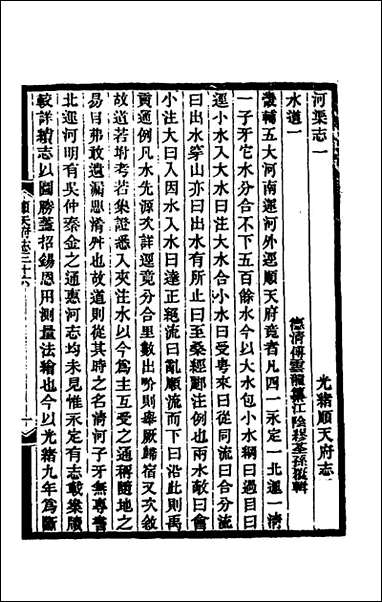 光緒順天府志
河渠志一
水道一
德清傅雲龍纂江陰繆荃孫覆輯
畿輔五大河南運河外逕順天府竟者凡四一永定一北運一清
一子牙它水分合不下五百餘水今以大水包小水綱曰過目曰
逕小水入大水曰注大水合小水曰受粵來曰從同流曰合分流
曰出水穿山亦曰出水有所止曰至桑經酈注例也兩水敵曰會
小注大曰入因水入水曰達正絕流曰亂順流而下曰沿此則禹
貢通例凡水先源次詳逕竟分合里數出畍則舉厥歸宿又次敘
故道若坿考若集證悉入夾注水以今爲主互受之通稱隨地之
易目弗敢遺漏思淆舛也故道則從其時之名清河子牙無專書
北運河明有吳仲秦金之通惠河志均未見惟永定有志載案牘
較詳續志以圖勝葢招錫恩用測量法繪也今以光緒九年爲斷
順天府志三十六
一